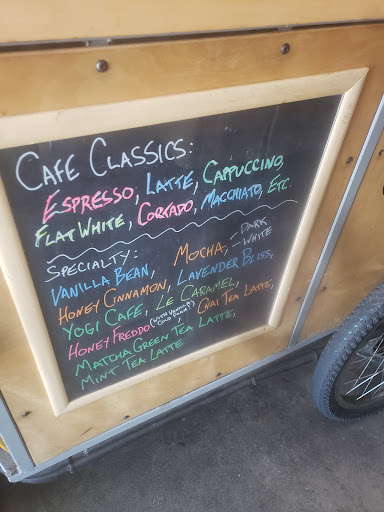 CAFE CLASSICS:
ESPRESSO, LATTE, CAPPUCCINO,
FLAT WHITE, CORTADO, MACCHIATO, ETC.
SPECIALTY:
VANILLA BEAN, MOCHA, -DARK -WHITE
HONEY CINNAMON, LAVENDER BLISS,
YOGI CAFE, LE CARAMEL,
HONEY FREDDO (WITH VANILLA COLD FOAM!), CHAI TEA LATTE,
MATCHA GREEN TEA LATTE,
MINT TEA LATTE